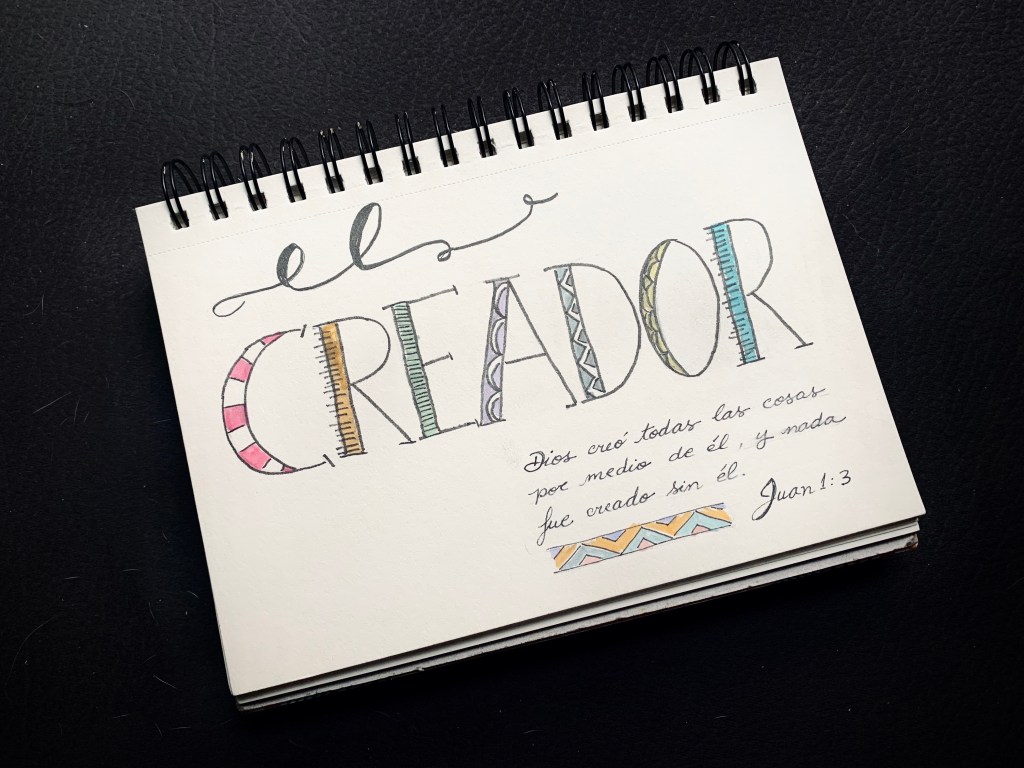 el
CREADOR
Dios creó todas las cosas
por medio de él, y nada
fue creado sin él.
Juan 1:3